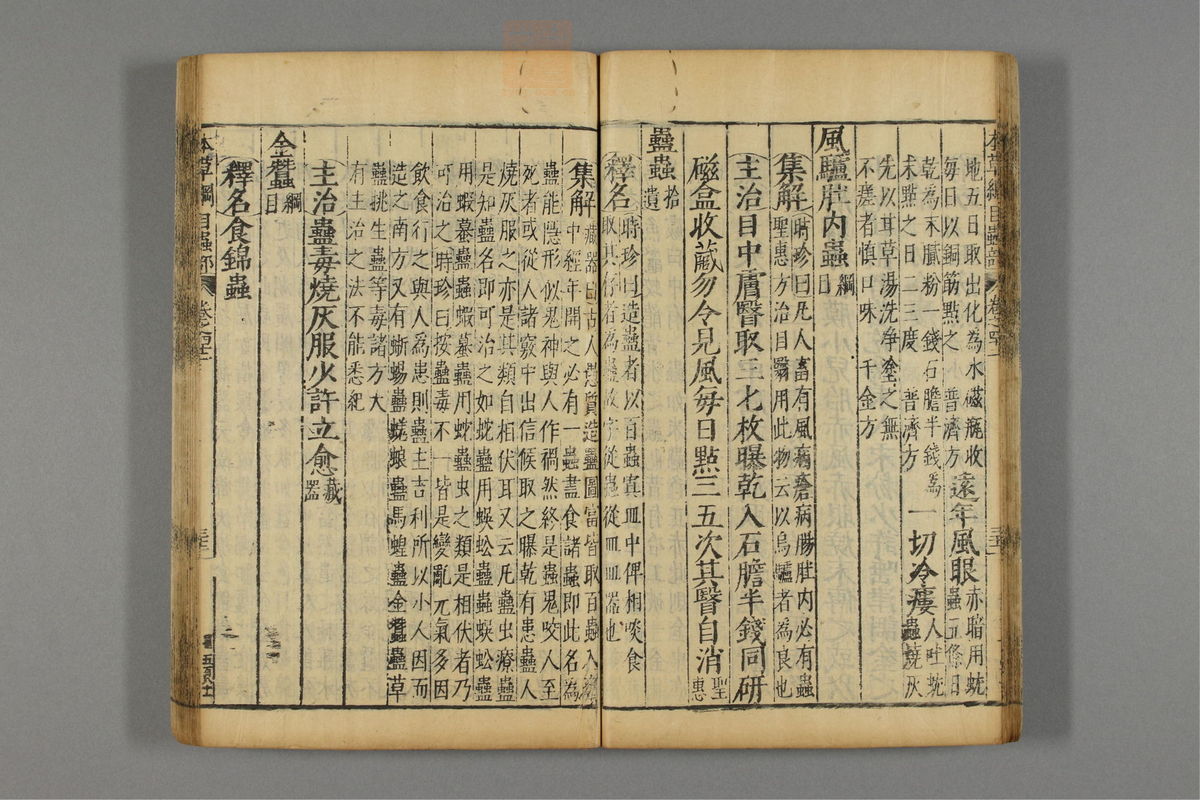 本草綱目蟲部 卷之四十二
地五日取出化為水磁瓶收
每日以銅筯點之 普濟方 遠年風眼 赤暗用蚘蟲五條日
乾為末膩粉一錢石膽半錢為
末點之日二三度 普濟方 一切冷瘻 人吐蚘蟲燒灰
先以耳草湯洗净塗之無
不瘥者慎口味 千金方
風驢肚内蟲 綱目
集解 時珍曰凡人畜有風病瘡病腸肚内必有蟲
聖惠方治目翳用此物云以烏驢者為良也
主治目中膚翳取三七枚曝乾入石膽半錢同研
磁盒收藏勿令見風每日點三五次其翳自消 聖惠
蠱蟲 拾遺
釋名 時珍曰造蠱者以百蟲寘皿中俾相啖食
取其存者為蠱故字從蟲從皿皿器也
集解 藏器曰古人愚質造蠱圖富皆取百蟲入甕
中經年開之必有一蟲盡食諸蟲即此名為
蠱能隱形似鬼神與人作禍然終是蟲鬼咬人至
死者或從人諸竅中出信候取之曝乾有患蠱人
燒灰服之亦是其類自相伏耳又云凡蠱虫療蠱
是知蠱名即可治之如蛇蠱用蜈蚣蠱蟲蜈蚣蠱
用蝦蟇蠱蟲蝦蟇蠱用蛇蠱虫之類是相伏者乃
可治之時珍曰按蠱毒不一皆是變亂元氣多因
飲食行之與人為患則蠱主吉利所以小人因而
造之南方又有蜥蜴蠱蜣蜋蠱馬蝗蠱金蠶蠱草
蠱挑生蠱等毒諸方大
有主治之法不能悉紀
主治蠱毒燒灰服少許立愈 藏器
金蠶 綱目
釋名食錦蟲
本草綱目蟲部 卷之四十二